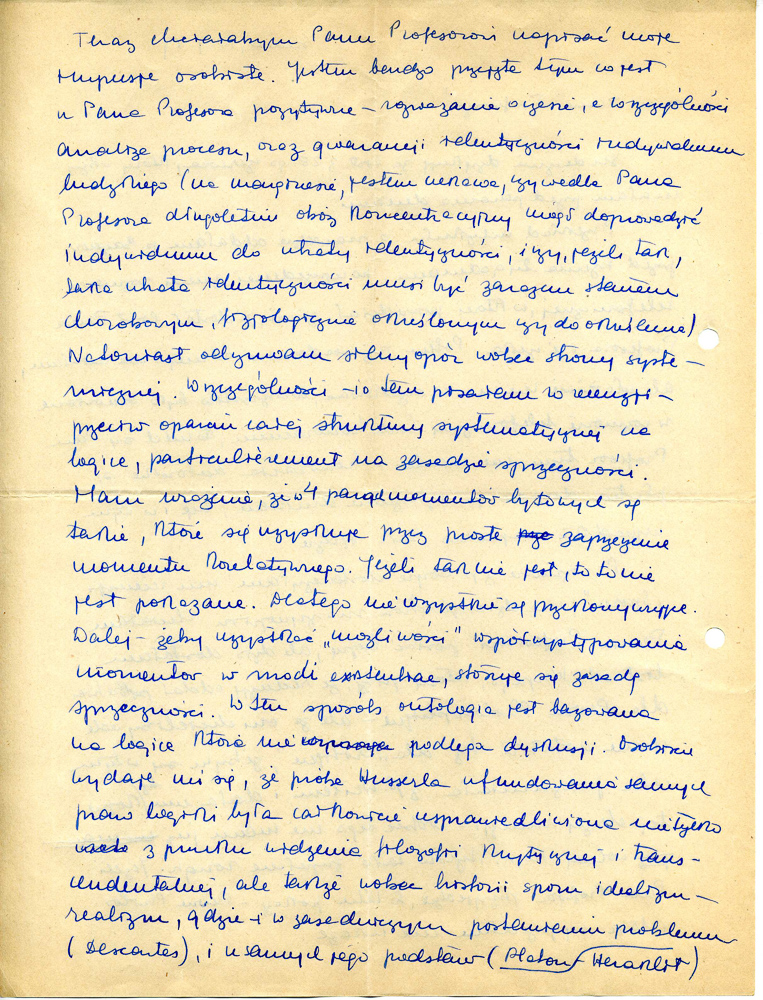 Teraz chciałabym Panu Profesorowi napisać moje
impresje osobiste. Jestem bardzo przejęta tym co jest
u Pana Profesora pozytywne – rozważania o czasie, a w szczególności
analiza procesu, oraz gwarancji identyczności indywiduum
ludzkiego (na marginesie, jestem ciekawa, czy wedle Pana
Profesora długoletni obóz koncentracyjny mógł doprowadzić
indywiduum do utraty identyczności, i czy, jeżeli tak,
taka utrata identyczności musi być zarazem stanem
chorobowym, fizjologicznie określonym czy do określenia)
Natomiast odczuwam silny opór wobec strony syste-
micznej. W szczególności – i o tem pisałam w recenzji –
przeciw oparciu całej struktury systematycznej na
logice, particulièrement na zasadzie sprzeczności.
Mam wrażenie, że w 4 parach momentów bytowych są
takie, które się uzyskuje przez proste zaprzeczenie
momentu korelatywnego. Jeżeli tak nie jest, to to nie
jest pokazane. Dlatego nie wszystkie są przekonywujące.
Dalej – żeby uzyskać „możliwości" współwystępowania
momentów w modi existentiae, stosuje się zasadę
sprzeczności. W ten sposób ontologia jest bazowana
na logice która nie podlega dyskusji. Osobiście
wydaje mi się, że próba Husserla ufundowania samych
praw logiki była całkowicie usprawiedliwiona nie tylko
z punktu widzenia filozofii krytycznej i trans-
cendentalnej, ale także wobec historii sporu idealizm –
realizm, gdzie – i w zasadniczym postawieniu problemu
(Descartes), i u samych jego podstaw (Platon – Heraklit)